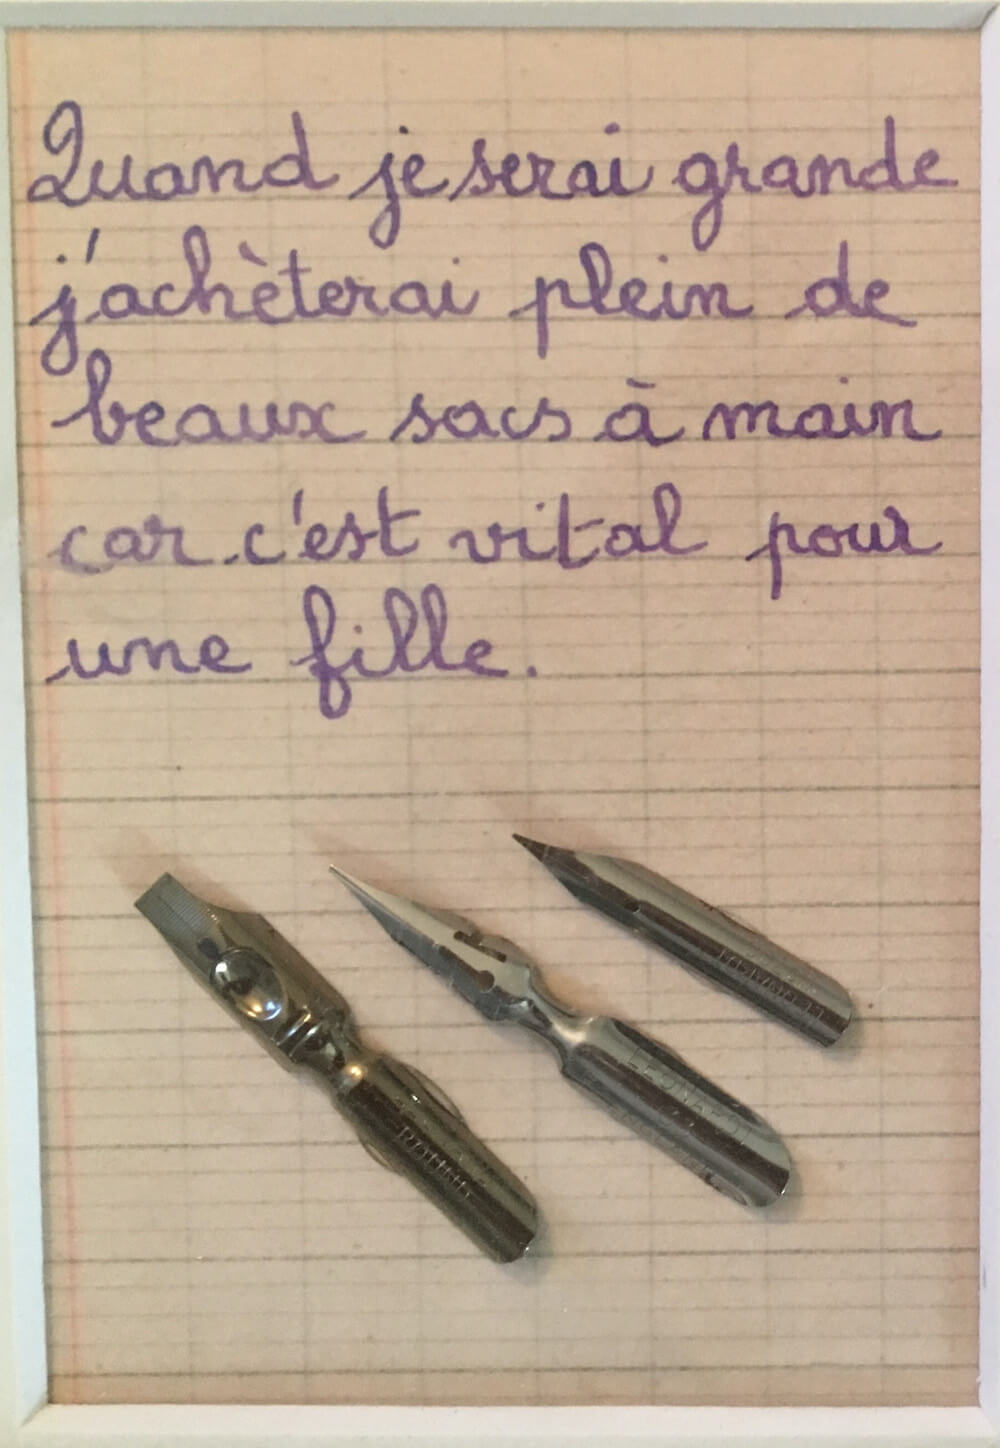 Quand je serai grande
j'achèterai plein de
beaux sacs à main
car c'est vital pour
une fille.